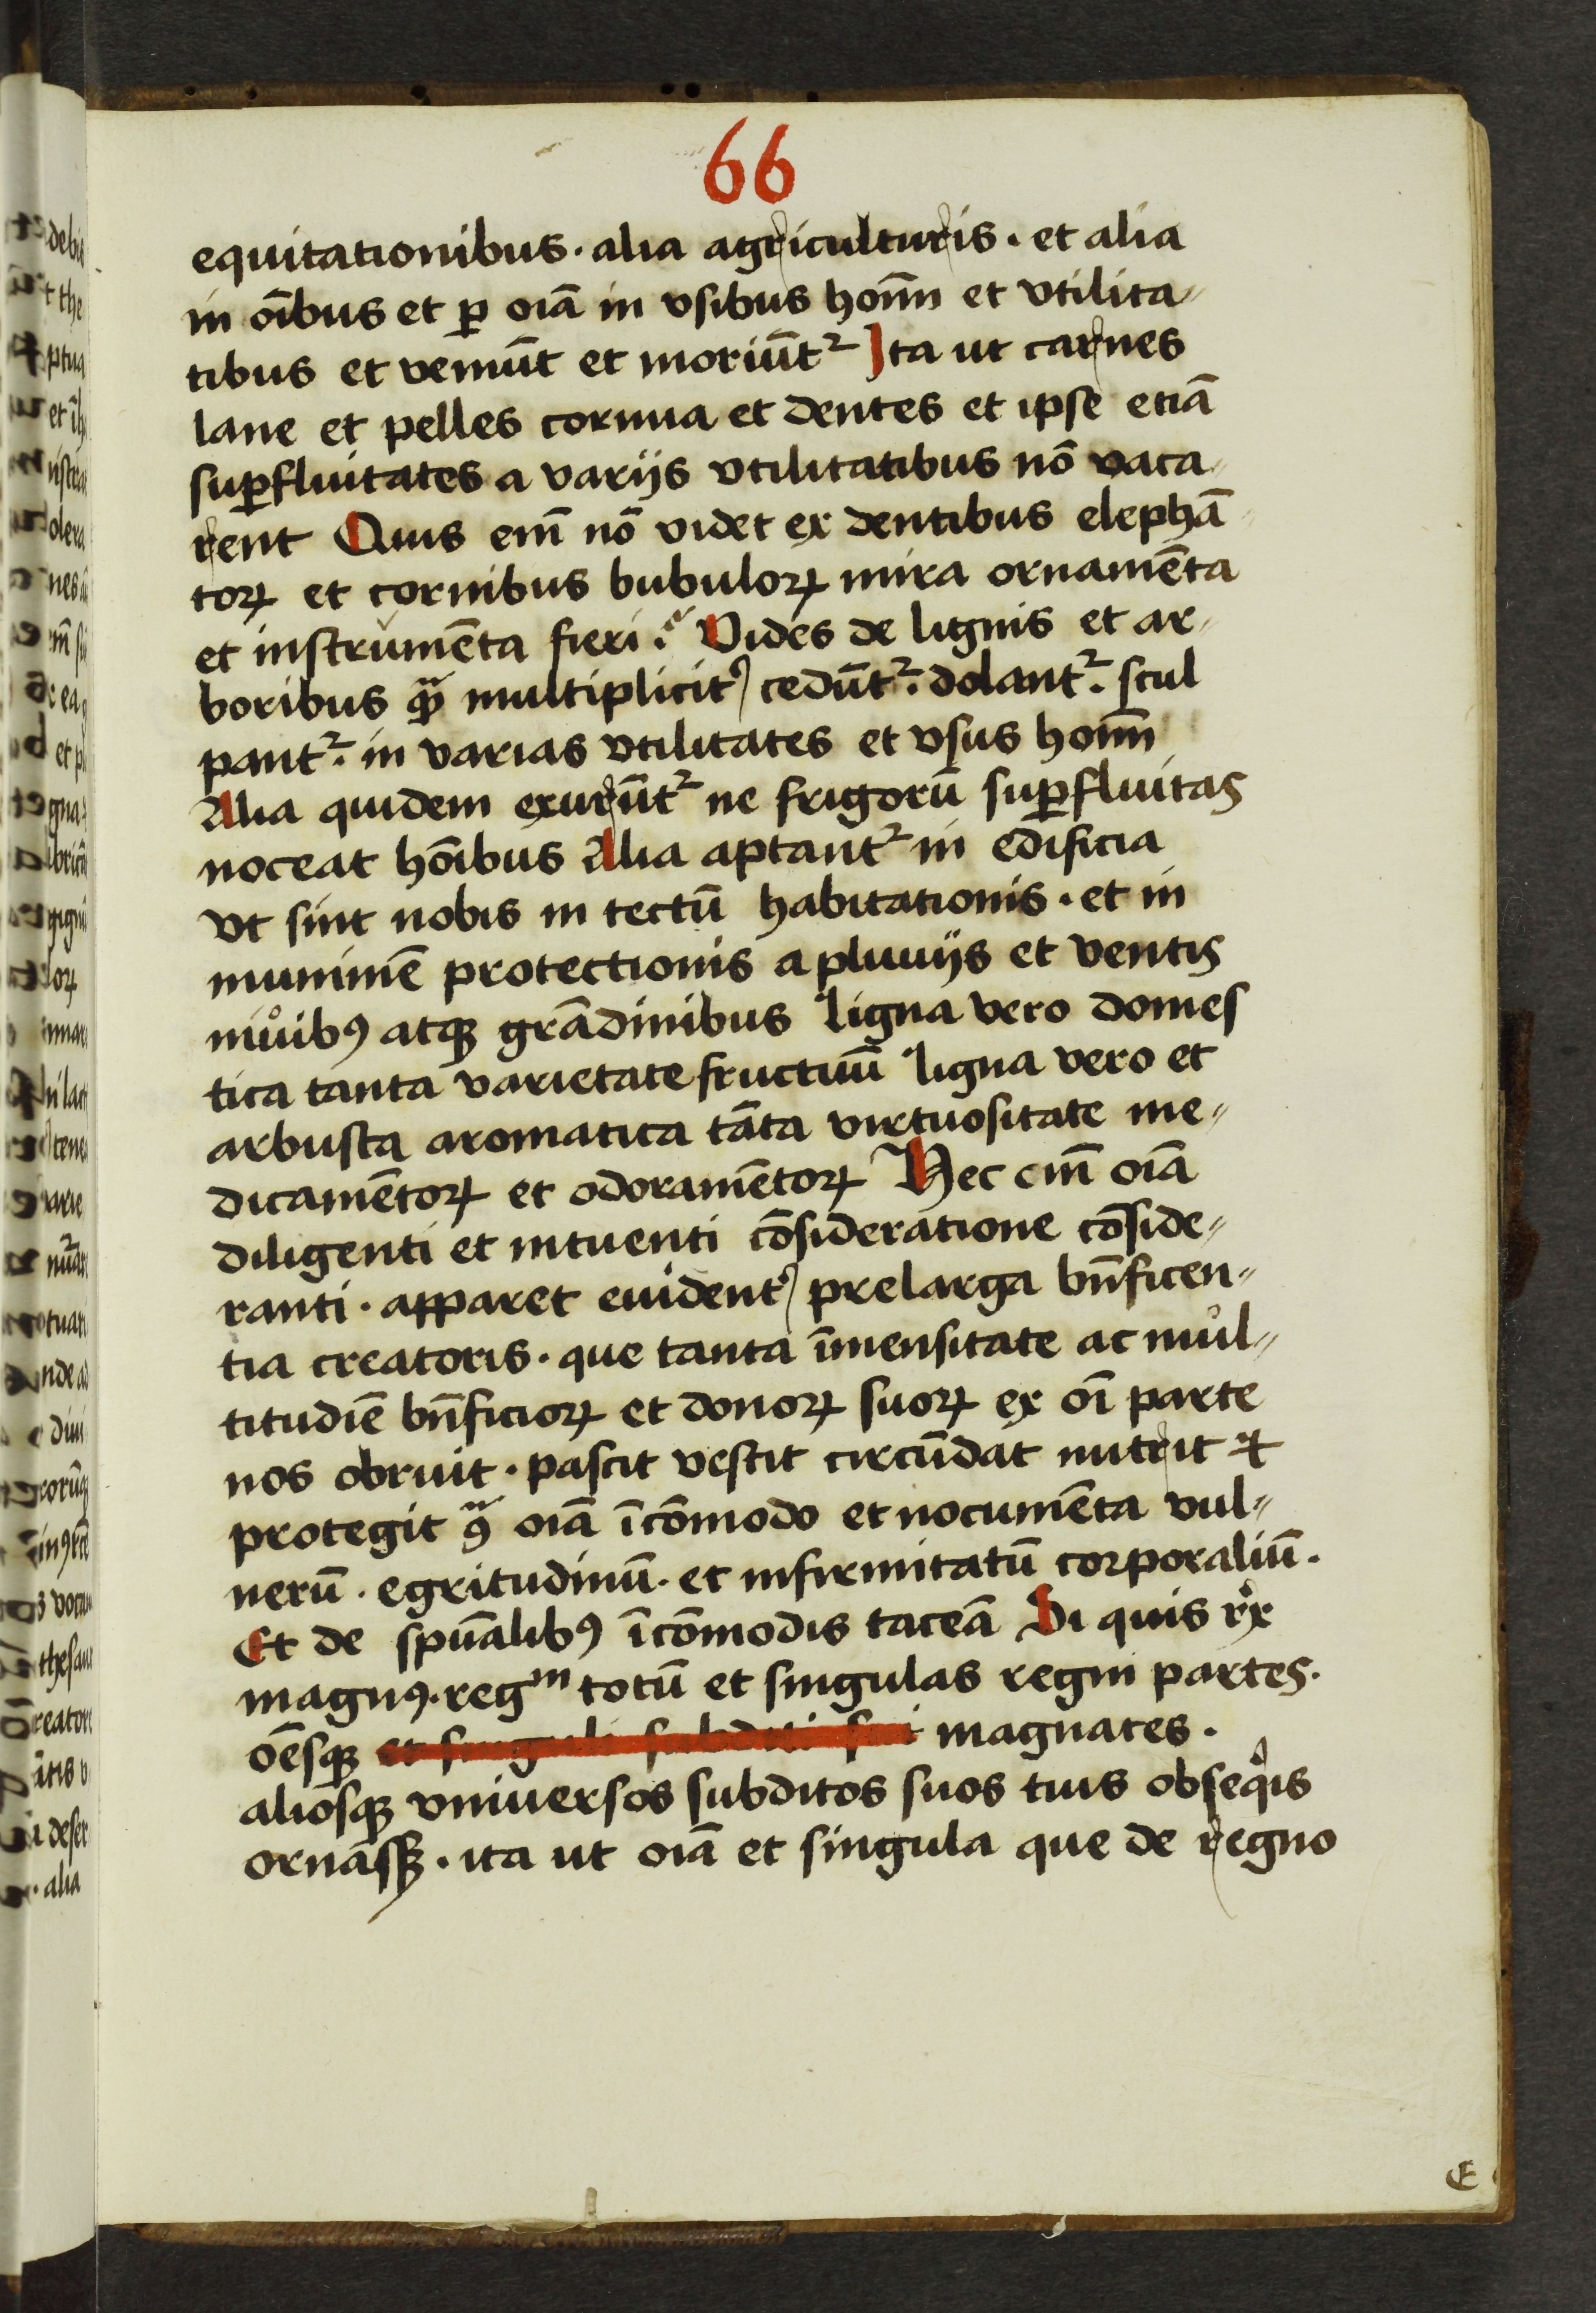 66
equitationibus · alia agriculturis · et alia
in oībus et ꝑ oīa in vsibus hoīm et vtilita⸗
tibus et veniūt et moriūt᷑ Ita ut carnes
lane et pelles cornua et dentes et ipse etiā
suꝑfluitates a varijs vtilitatibus nō vaca⸗
rent Quis eīm nō videt ex dentibus elephā⸗
toꝝ et cornibus bubuloꝝ mira ornamēta
et instrumēta fieri ? Vides de lignis et ar⸗
boribus qᷓꝫ multiplicit᷑ cedūt᷑ · dolant᷑ · scul
pant᷑ · in varias vtilitates et vsus hoīm
Alia quidem exurūt᷑ ne frigorū suꝑfluitas
noceat hoībus Alia aptant᷑ in edificia
vt sint nobis in tectū habitationis · et in
munimē protectionis a pluuijs et ventis
niuibꝯ atqꝫ grādinibus ligna vero domes
tica tanta varietate fructuū ligna vero et
arbusta aromatica tāta virtuositate me⸗
dicamētoꝝ et odoramētoꝝ Hec eīm oīa
diligenti et intuenti cōsideratione cōside⸗
ranti · apparet euident᷑ prelarga bn̄ficen⸗
tia creatoris · que tanta īmensitate ac mul⸗
titudīe bn̄ficioꝝ et donoꝝ suoꝝ ex oī parte
nos obruit · pascit vestit circūdat nutrit ⁊
protegit ꝯᷓ oīa īcōmodo et nocumēta vul⸗
nerū · egritudinū · et infirmitatū corporaliū ·
Et de spūalibꝯ īcōmodis taceā Si quis rex
magnꝯ · regᵐ totū et singulas regni partes ·
oēsqꝫ et singuli subditi sui magnates ·
aliosqꝫ vniuersos subditos suos tuis obseqͥis
ornassꝫ · ita ut oīa et singula que de regno